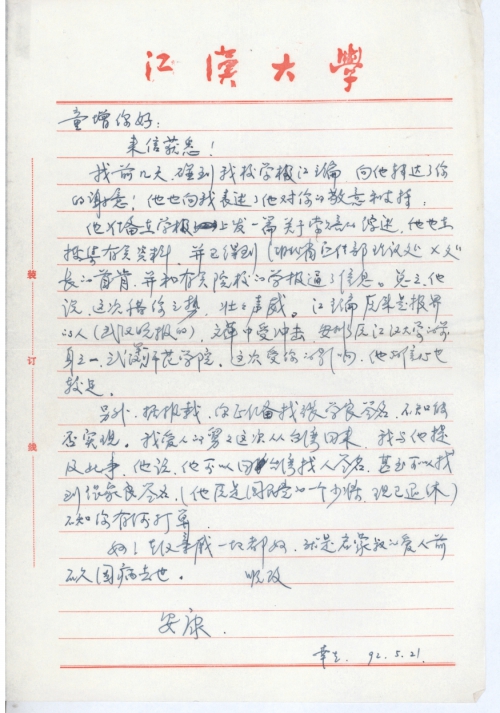 江汉大学
童增你好：
来信获悉！
我前几天碰到我校学报江主编，向他转达了你
的谢意！他也向我表达了他对你的敬意和支持：
他准备在学报上发一篇关于索赔的综述，他也在
搜集有关资料，并已得到
长的首肯，并和有关院校的学报通了信息。总之，他
说，这次借你之势，壮之声威。江主编原来是报界
的人（武汉晚报的），文革中受冲击，
身之一武汉师范学院。这次受你的影响，他的信心也
较足。
另外，据报载，你正准备找张学良签名，不知能
否实现。我爱人的舅舅这次从台湾回来，我与他提
及此事，他说，他可以回台湾找人签名，甚至可以找
到张学良签名，（他原是国民党的一个少将，现已退休）
不知你有何打算。
好！在汉亲戚一切都好，就是君蒙叔的爱人前
不久因病去世。
顺致
安康。
92.5.21.
装
订
线